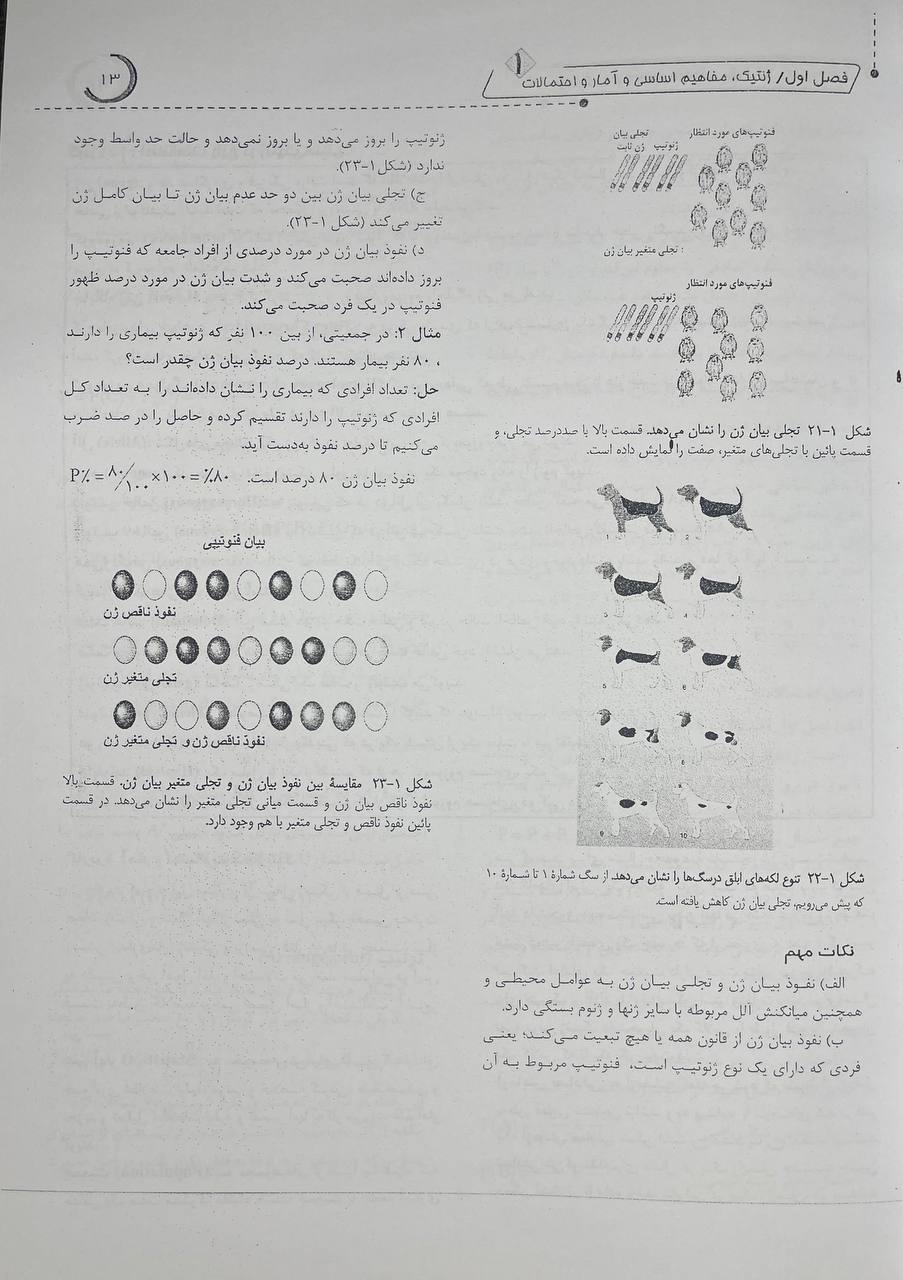 فصل اول/ ژنتیک، مفاهیم اساسی و آمار و احتمالات
۱
۱۳
فنوتیپ‌های مورد انتظار
تجلی بیان
ژنوتیپ
ژن ثابت
تجلی متغیر بیان ژن :
فنوتیپ‌های مورد انتظار
ژنوتیپ
شکل ۱-۲۱ تجلی بیان ژن را نشان می‌دهد. قسمت بالا با صددرصد تجلی، و
قسمت پائین با تجلی‌های متغیر، صفت را نمایش داده است.
1 2
3 4
5 6
7 8
9 10
شکل ۱-۲۲ تنوع لکه‌های ابلق درسگ‌ها را نشان می‌دهد. از سگ شمارهٔ ۱ تا شمارهٔ ۱۰
که پیش می‌رویم، تجلی بیان ژن کاهش یافته است.
نکات مهم
الف) نفوذ بیان ژن و تجلی بیان ژن به عوامل محیطی و
همچنین میانکنش آلل مربوطه با سایر ژنها و ژنوم بستگی دارد.
ب) نفوذ بیان ژن از قانون همه یا هیچ تبعیت می‌کند؛ یعنی
فردی که دارای یک نوع ژنوتیپ است، فنوتیپ مربوط به آن
ژنوتیپ را بروز می‌دهد و یا بروز نمی‌دهد و حالت حد واسط وجود
ندارد (شکل ۱-۲۳).
ج) تجلی بیان ژن بین دو حد عدم بیان ژن تا بیان کامل ژن
تغییر می‌کند (شکل ۱-۲۳).
د) نفوذ بیان ژن در مورد درصدی از افراد جامعه که فنوتیپ را
بروز داده‌اند صحبت می‌کند و شدت بیان ژن در مورد درصد ظهور
فنوتیپ در یک فرد صحبت می‌کند.
مثال ۲: در جمعیتی، از بین ۱۰۰ نفر که ژنوتیپ بیماری را دارند
، ۸۰ نفر بیمار هستند. درصد نفوذ بیان ژن چقدر است؟
حل: تعداد افرادی که بیماری را نشان داده‌اند را به تعداد کل
افرادی که ژنوتیپ را دارند تقسیم کرده و حاصل را در صد ضرب
می‌کنیم تا درصد نفوذ به‌دست آید.
نفوذ بیان ژن ۸۰ درصد است. P٪ = ۸۰/۱۰۰ × ۱۰۰ = ٪۸۰
بیان فنوتیپی
نفوذ ناقص ژن
تجلی متغیر ژن
نفوذ ناقص ژن و تجلی متغیر ژن
شکل ۱-۲۳ مقایسهٔ بین نفوذ بیان ژن و تجلی متغیر بیان ژن. قسمت بالا
نفوذ ناقص بیان ژن و قسمت میانی تجلی متغیر را نشان می‌دهد. در قسمت
پائین نفوذ ناقص و تجلی متغیر با هم وجود دارد.